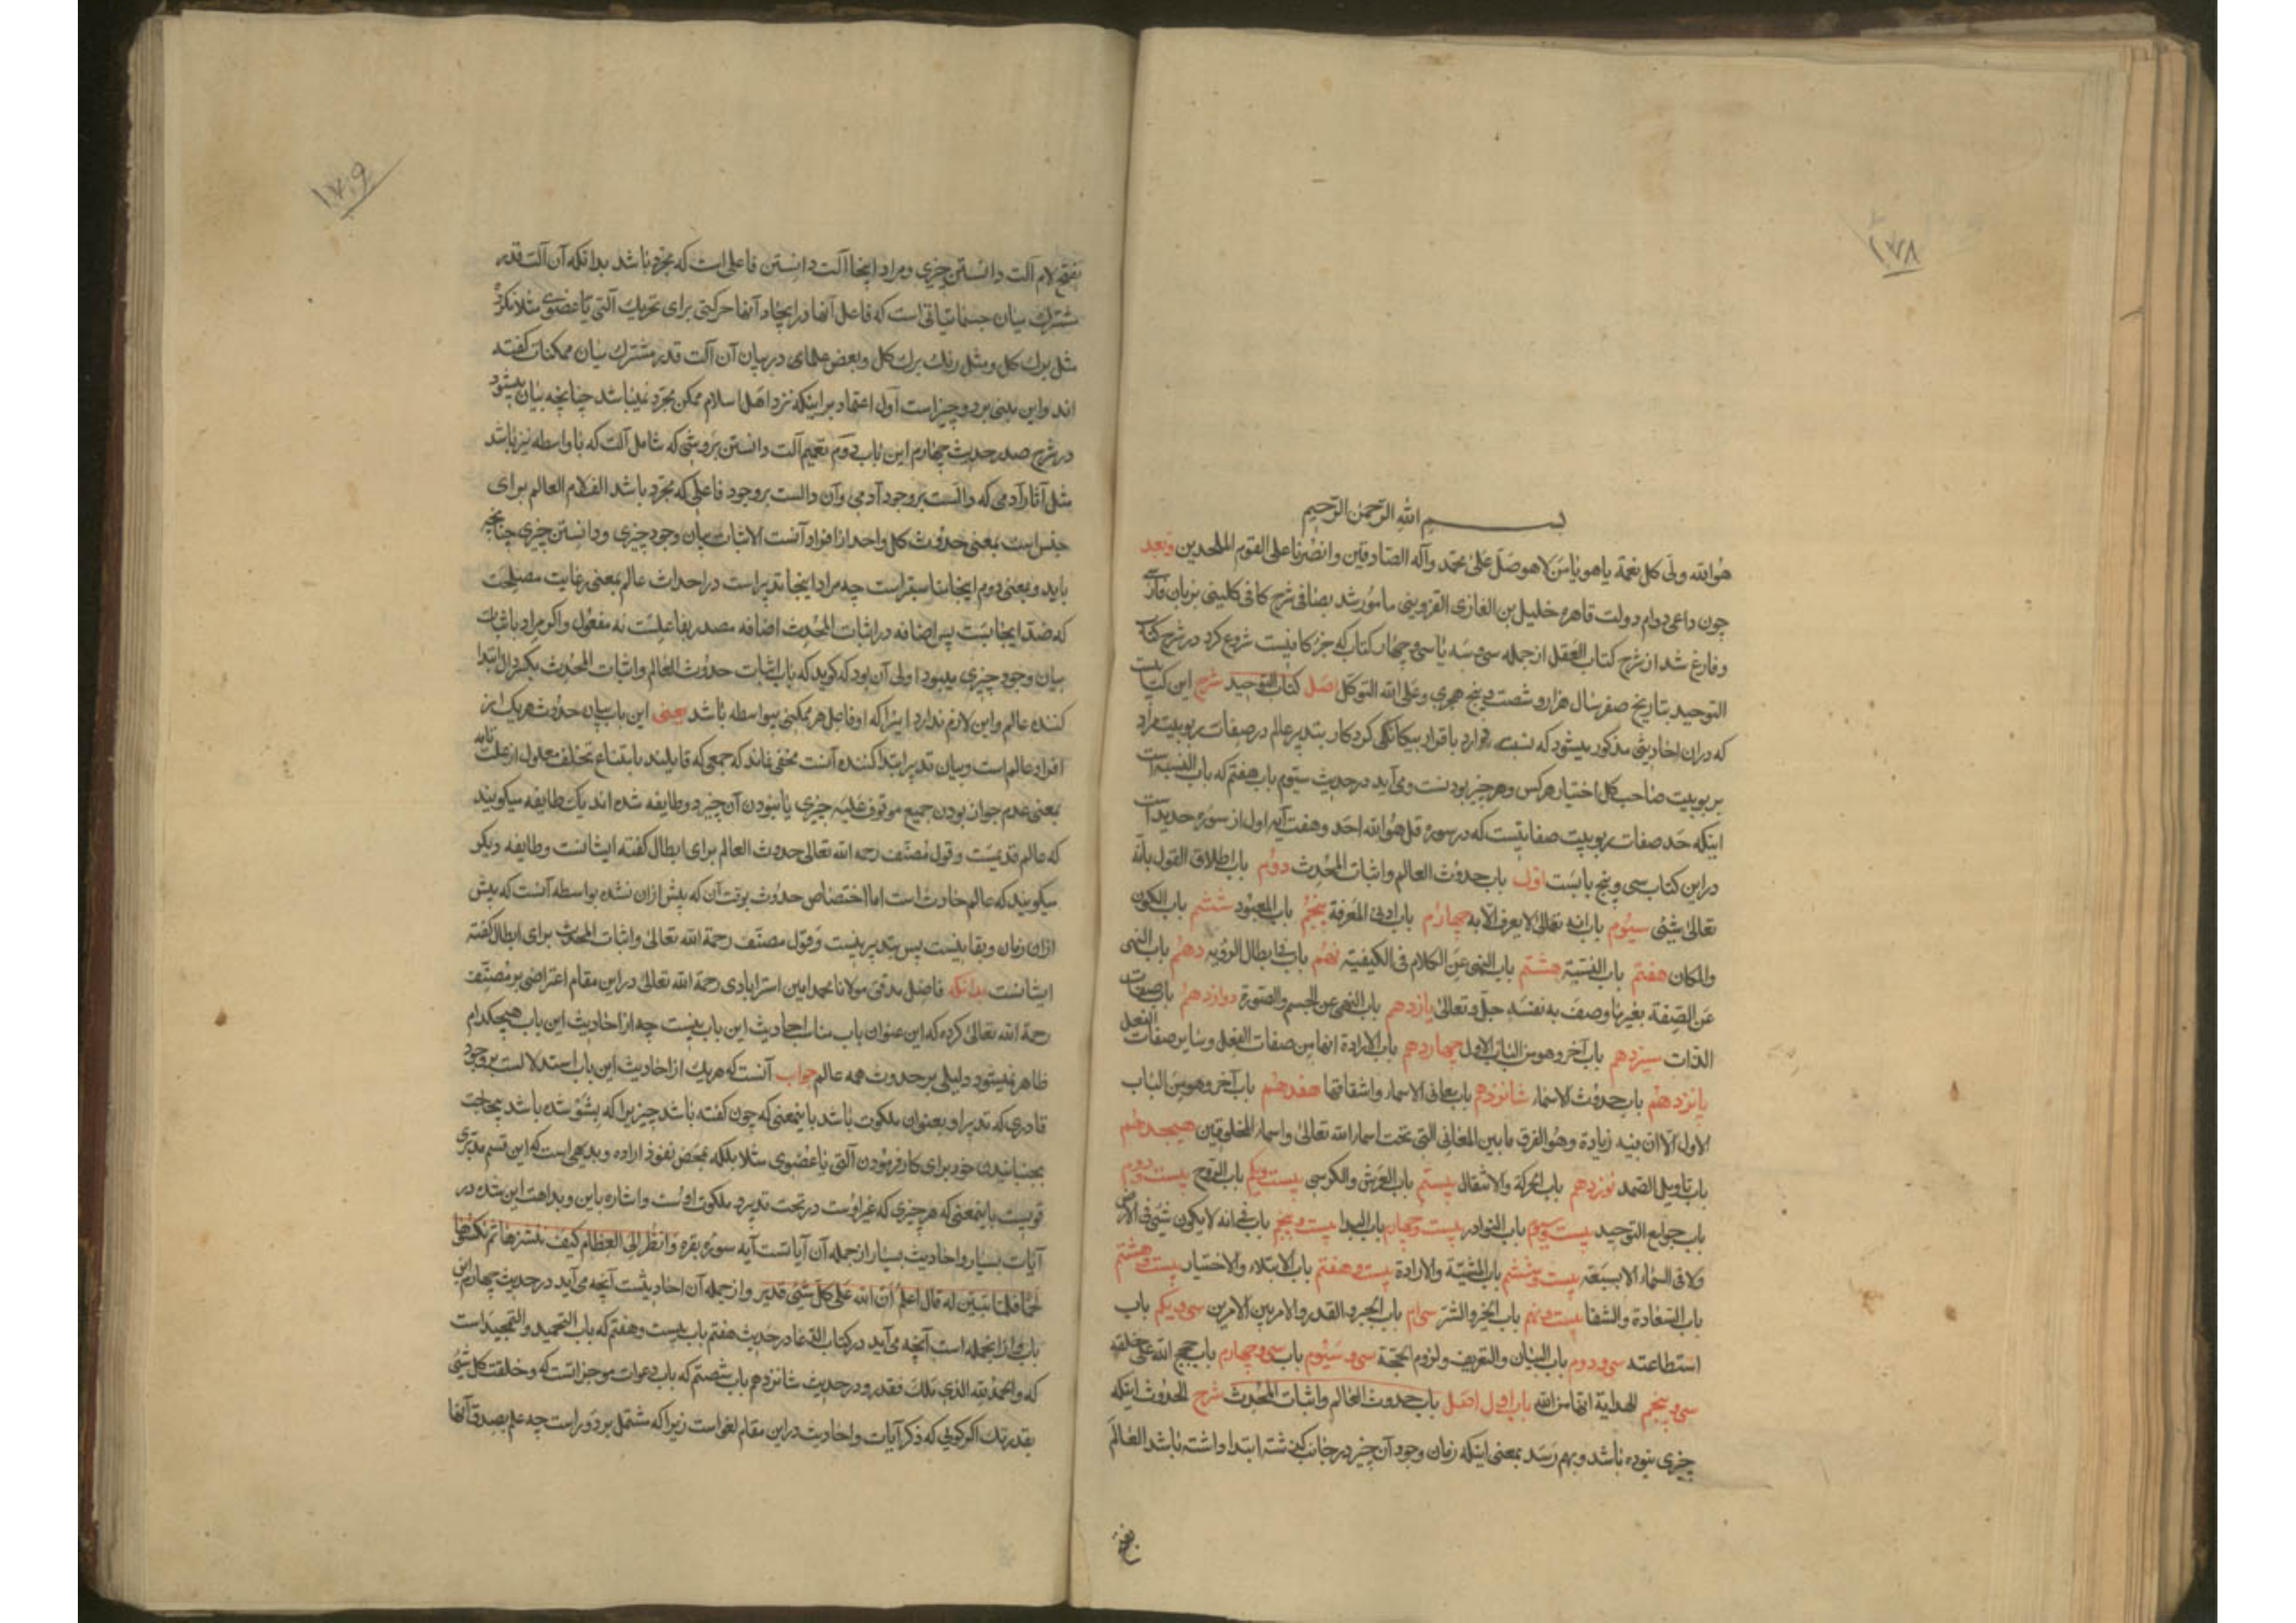 ۱۷۸
بسم الله الرحمن الرحیم
هو الله ولی کل نعمة یا هو یا من لا هو صل علی محمد وآله الصادقین وانصرنا علی القوم الملحدین وبعد
چون داعی دوام دولت قاهره خلیل بن الغازی القزوینی مامور شد بصافی شرح کافی کلینی بزبان فارسی
وفارغ شد از شرح کتاب العقل از جمله سی وسه یا سی وچهار کتاب که جزء کافیست شروع کرد در شرح کتاب
التوحید بتاریخ صفر سال هزار وشصت وپنج هجری وعلی الله التوکل اصل کتاب التوحید شرح این کتابیست
که دران احادیثی مذکور میشود که نسبت دارد باقرار بیکانکی کردکار بتدبیر عالم در صفات ربوبیت مراد
بربوبیت صاحب کل اختیار هرکس وهر چیز بودنست ومی آید در حدیث سیوم باب هفتم که باب النسبة است
اینکه حد صفات ربوبیت صفاتیست که در سوره قل هو الله احد وهفت آیه اول از سوره حدید است
در این کتاب سی وپنج بابست اول باب حدوث العالم واثبات المحدث دوم باب اطلاق القول بانه
تعالی شیئی سیوم باب انه تعالی لا یعرف الا به چهارم باب ادنی المعرفة پنجم باب المعبود ششم باب الکون
والمکان هفتم باب النسبة هشتم باب النهی عن الکلام فی الکیفیة نهم باب فی ابطال الرؤیه دهم باب النهی
عن الصفة بغیر ما وصف به نفسه جل وتعالی یازدهم باب النهی عن الجسم والصورة دوازدهم باب صفات
الذات سیزدهم باب آخر وهو من الباب الاول چهاردهم باب الارادة انها من صفات الفعل وسایر صفات الفعل
پانزدهم باب حدوث الاسماء شانزدهم باب معانی الاسماء واشتقاقها هفدهم باب آخر وهو من الباب
الاول الا ان فیه زیادة وهو الفرق ما بین المعانی التی تحت اسماء الله تعالی واسماء المخلوقین هیجدهم
باب تاویل الصمد نوزدهم باب الحرکة والانتقال بیستم باب العرش والکرسی بیست ویکم باب الروح بیست ودوم
باب جوامع التوحید بیست وسیوم باب النوادر بیست وچهارم باب البدا بیست وپنجم باب فی انه لا یکون شئ فی الارض
ولا فی السماء الا بسبعة بیست وششم باب المشیة والارادة بیست وهفتم باب الابتلاء والاختیار بیست وهشتم
باب السعادة والشقا بیست ونهم باب الخیر والشر سی ام باب الجبر والقدر والامر بین الامرین سی ویکم باب
استطاعته سی ودوم باب البیان والتعریف ولزوم الحجة سی وسیوم باب سی وچهارم باب حجج الله علی خلقه
سی وپنجم الهدایة انها من الله باب اول اصل باب حدوث العالم واثبات المحدث شرح الحدوث اینکه
چیزی نبوده باشد وبهم رسد بمعنی اینکه زمان وجود آن چیز در جانب کذشته ابتدا داشته باشد العالم
بفتح
۱۷۹
بفتح لام آلت دانستن چیزی ومراد اینجا آلت دانستن فاعلی است که مجرد باشد بدانکه آن آلت قدر
مشترک میان جسمانیاتی است که فاعل آنها در ایجاد آنها حرکتی برای تحریک آلتی یا عضوی مثلا نکرده
مثل برک کل ومثل رنک برک کل وبعض علمای در بیان آن آلت قدر مشترک میان ممکنات کفته
اند واین مبنی بر دو چیز است اول اعتماد بر اینکه نزد اهل اسلام ممکن مجرد نمیباشد چنانچه بیان میشود
در شرح صدر حدیث چهارم این باب دوم تعمیم آلت دانستن بروشی که شامل آلت که با واسطه نیز باشد
مثل آثار آدمی که دالست بر وجود آدمی وآن دالست بر وجود فاعلی که مجرد باشد الف لام العالم برای
جنس است بمعنی حدوث کل واحد از افراد آنست الاثبات بیان وجود چیزی ودانستن چیزی چنانچه
باید ومعنی دوم اینجا مناسبتر است چه مراد اینجا تدبیر است در احداث عالم بمعنی رعایت مصلحت
که ضد ایجابست پس اضافه در اثبات المحدث اضافه مصدر بفاعلست نه مفعول واکر مراد باثبات
بیان وجود چیزی میبود اولی آن بود که کوید که باب اثبات حدوث العالم واثبات المحدث بکسر دال ابتدا
کننده عالم واین لازم ندارد اینرا که او فاعل هر ممکنی بیواسطه باشد یعنی این باب بیان حدوث هر یک از
افراد عالم است وبیان تدبیر ابتدا کننده آنست مخفی نماند که جمعی که قایلند بامتناع تخلف معلول از علت تامه
بمعنی عدم جواز بودن جمیع موقوف علیه چیزی با نبودن آن چیز دو طایفه شده اند یک طایفه میکویند
که عالم قدیمست وقول مصنف رحمه الله تعالی حدوث العالم برای ابطال کفته ایشانست وطایفه دیکر
میکویند که عالم حادث است اما اختصاص حدوث بوقت آن که پیش ازان نشده بواسطه آنست که پیش
ازان زمان وبقا نیست پس بتدبیر نیست وقول مصنف رحمة الله تعالی واثبات المحدث برای ابطال کفته
ایشانست بدانکه فاضل مدقق مولانا محمد امین استرابادی رحمة الله تعالی در این مقام اعتراضی بر مصنف
رحمة الله تعالی کرده که این عنوان باب مناسب احادیث این باب نیست چه از احادیث این باب هیچکدام
ظاهر نمیشود دلیلی بر حدوث همه عالم جواب آنست که هر یک از احادیث این باب استدلالست بر وجود
قادری که تدبیر او بعنوان ملکوت باشد باینمعنی که چون کفته باشد چیزیرا که بشو شده باشد بیحاجت
بجنبانیدن خود برای کار فرمودن آلتی یا عضوی مثلا بلکه بمحض نفوذ اراده وبدیهی است که این قسم مدبری
قویست باینمعنی که هر چیزی که غیر اوست در تحت تدبیر ملکوت اوست واشاره باین وبداهت این شده در
آیات بسیار واحادیث بسیار از جمله آن آیاتست آیه سوره بقره وانظر الی العظام کیف ننشزها ثم نکسوها
لحما فلما تبین له قال اعلم ان الله علی کل شئ قدیر واز جمله آن احادیثست آنچه می آید در حدیث چهارم این
باب واز انجمله است آنچه می آید در کتاب الدعا در حدیث هفتم باب بیست وهفتم که باب التحمید والتمجید است
که والحمد لله الذی ملک فقدر ودر حدیث شانزدهم باب شصتم که باب دعوات موجزاتست که وخلقت کل شئ
بقدرتک اکر کویی که ذکر آیات واحادیث در این مقام لغو است زیرا که مشتمل بر دور است چه علم بصدق آنها